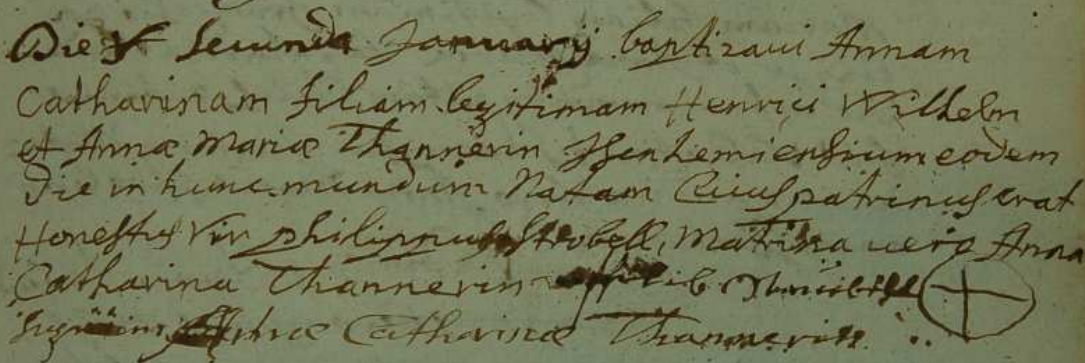 Die secunda Januarij baptizavi Annam
Catharinam filiam legitimam Henrici Wilhelm
et Annæ Mariæ Thannerin Isenhemiensium eodem
die in hunc mundum Natam Cuius patrinus erat
Honestus Vir philippus Strobell, Matrina uero Anna
Catharina Thannerin
Signum Annæ Catharinæ Thannerin